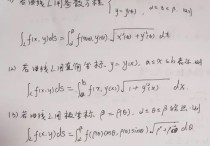 若曲线L用参数方程 { y=y(θ), α≤θ≤β. 则
∫_L f(x,y)ds = ∫_α^β f(x(θ),y(θ)) √(x'²(θ)+y'²(θ)) dθ.
(2) 若曲线L用直角坐标 y=y(x), a≤x≤b 表示. 则
∫_L f(x,y)ds = ∫_a^b f(x,y(x)) √(1+y'²(x)) dx.
(3) 若曲线L用极坐标 ρ=ρ(θ), α≤θ≤β 给出. 则
∫_L f(x,y)ds = ∫_α^β f(ρ(θ)cosθ, ρ(θ)sinθ) √(ρ²+ρ'²) dθ